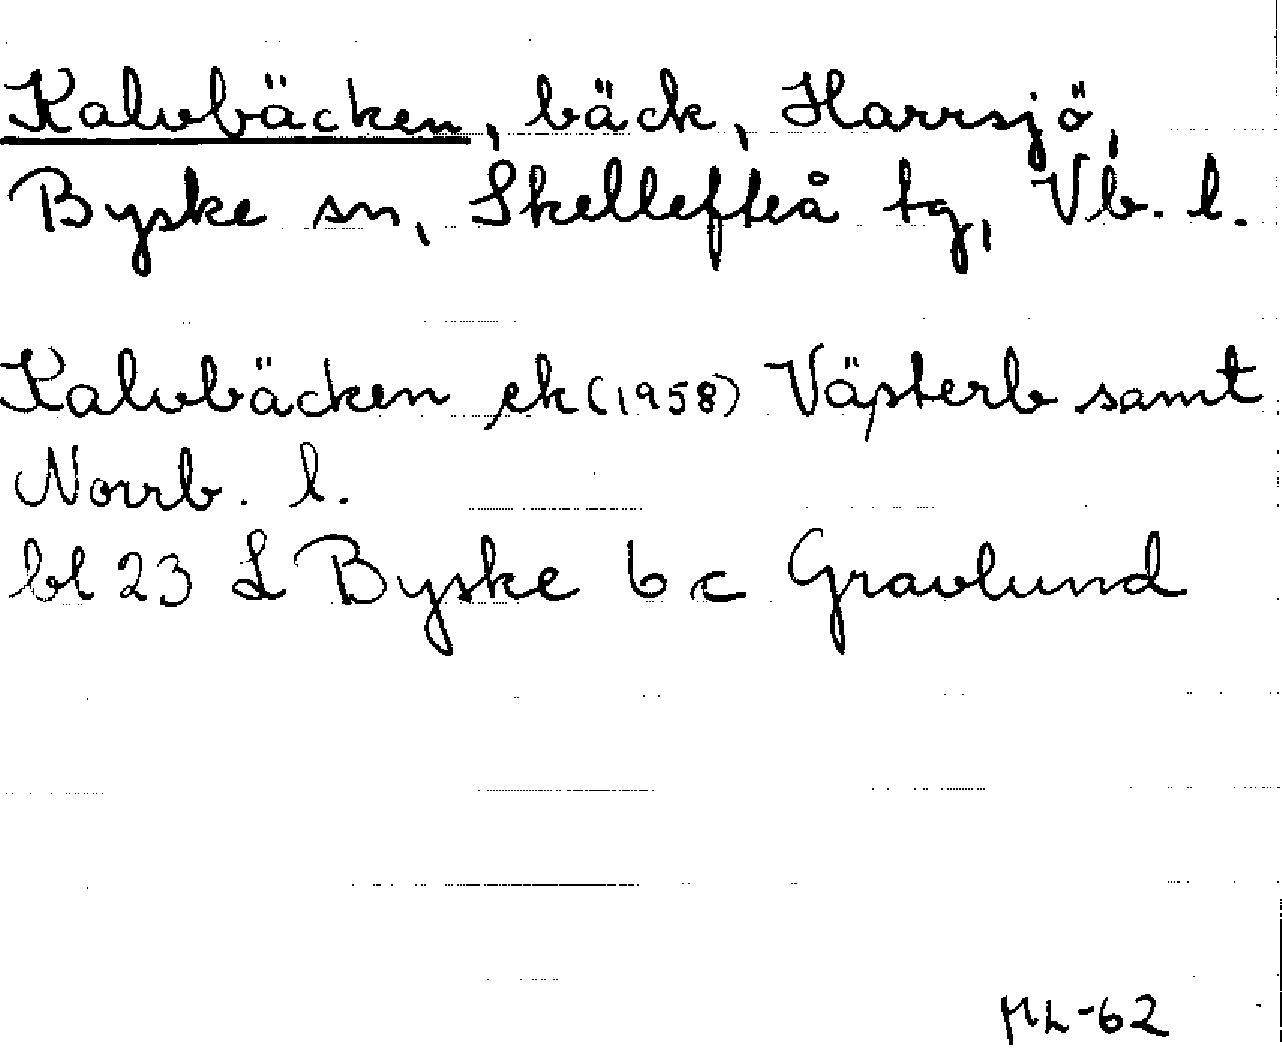 Kalvbäcken, bäck, Harrsjö,
Byske sn, Skellefteå tg, Vb. l.
Kalvbäcken ek (1958) Västerb samt
Norrb. l.
bl 23 L Byske 6 c Gravlund
ML-62